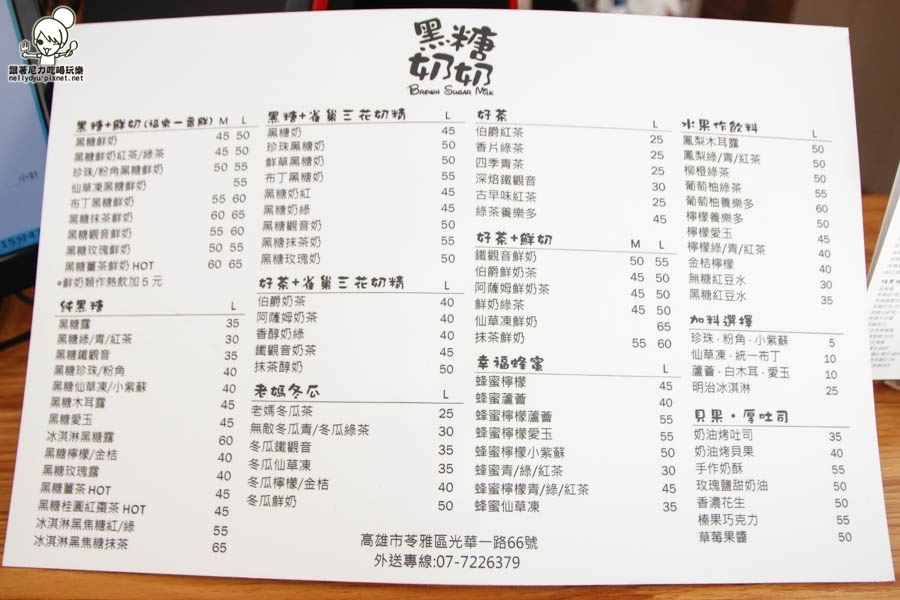 跟著尼力吃喝玩樂
nellydyu.pixnet.net
黑糖
奶奶
BROWN SUGAR MILK
黑糖+鮮奶(福樂一番鮮) M L
黑糖鮮奶 45 50
黑糖鮮奶紅茶/綠茶 45 50
珍珠/粉角黑糖鮮奶 50 55
仙草凍黑糖鮮奶 55
布丁黑糖鮮奶 55 60
黑糖抹茶鮮奶 60 65
黑糖觀音鮮奶 55 60
黑糖玫瑰鮮奶 50 55
黑糖薑茶鮮奶 HOT 60 65
*鮮奶類作熱飲加5元
純黑糖 L
黑糖露 35
黑糖綠/青/紅茶 30
黑糖鐵觀音 35
黑糖珍珠/粉角 40
黑糖仙草凍/小紫蘇 40
黑糖木耳露 45
黑糖愛玉 45
冰淇淋黑糖露 60
黑糖檸檬/金桔 40
黑糖玫瑰露 40
黑糖薑茶 HOT 45
黑糖桂圓紅棗茶 HOT 45
冰淇淋黑焦糖紅/綠 55
冰淇淋黑焦糖抹茶 65
黑糖+雀巢三花奶精 L
黑糖奶 45
珍珠黑糖奶 50
鮮草黑糖奶 50
布丁黑糖奶 55
黑糖奶紅 45
黑糖奶綠 45
黑糖觀音奶 50
黑糖抹茶奶 55
黑糖玫瑰奶 50
好茶+雀巢三花奶精 L
伯爵奶茶 40
阿薩姆奶茶 40
香醇奶綠 40
鐵觀音奶茶 45
抹茶醇奶 50
老媽冬瓜 L
老媽冬瓜茶 25
無敵冬瓜青/冬瓜綠茶 30
冬瓜鐵觀音 35
冬瓜仙草凍 35
冬瓜檸檬/金桔 40
冬瓜鮮奶 50
好茶 L
伯爵紅茶 25
香片綠茶 25
四季青茶 25
深焙鐵觀音 30
古早味紅茶 25
綠茶養樂多 45
好茶+鮮奶 M L
鐵觀音鮮奶 50 55
伯爵鮮奶茶 45 50
阿薩姆鮮奶茶 45 50
鮮奶綠茶 45 50
仙草凍鮮奶 65
抹茶鮮奶 55 60
幸福蜂蜜 L
蜂蜜檸檬 45
蜂蜜蘆薈 40
蜂蜜檸檬蘆薈 55
蜂蜜檸檬愛玉 55
蜂蜜檸檬小紫蘇 50
蜂蜜青/綠/紅茶 30
蜂蜜檸檬青/綠/紅茶 45
蜂蜜仙草凍 35
水果作飲料 L
鳳梨木耳露 50
鳳梨綠/青/紅茶 50
柳橙綠茶 50
葡萄柚綠茶 55
葡萄柚養樂多 60
檸檬養樂多 50
檸檬愛玉 45
檸檬綠/青/紅茶 40
金桔檸檬 40
無糖紅豆水 30
黑糖紅豆水 35
加料選擇
珍珠．粉角．小紫蘇 5
仙草凍．統一布丁 10
蘆薈．白木耳．愛玉 10
明治冰淇淋 25
貝果・厚吐司
奶油烤吐司 35
奶油烤貝果 40
手作奶酥 55
玫瑰鹽甜奶油 50
香濃花生 50
榛果巧克力 55
草莓果醬 50
高雄市苓雅區光華一路66號
外送專線:07-7226379
小計